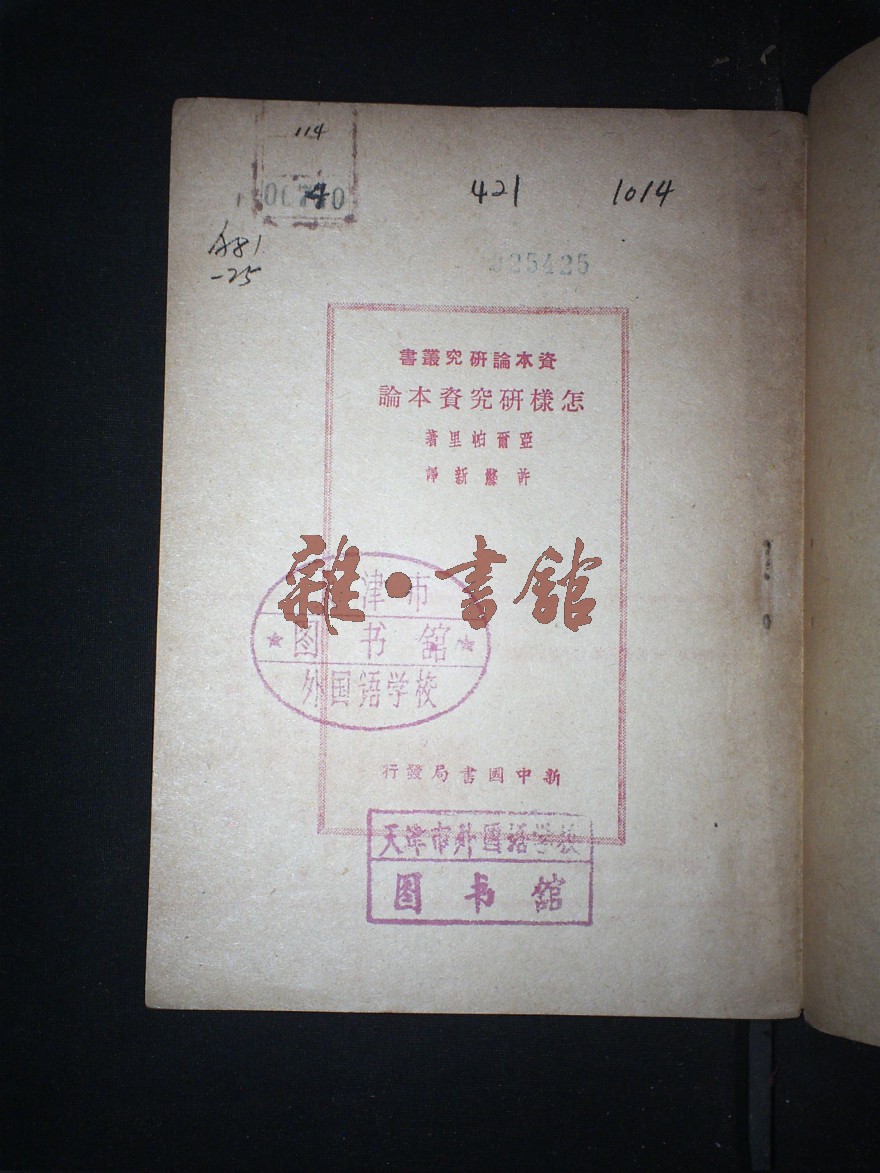 114
421
1014
A81
-25
025425
資本論研究叢書
怎樣研究資本論
亞爾帕里著
許滌新譯
雜·書館
津市
图书舘
外国语学校
新中國書局發行
天津市外国语学校
图书舘